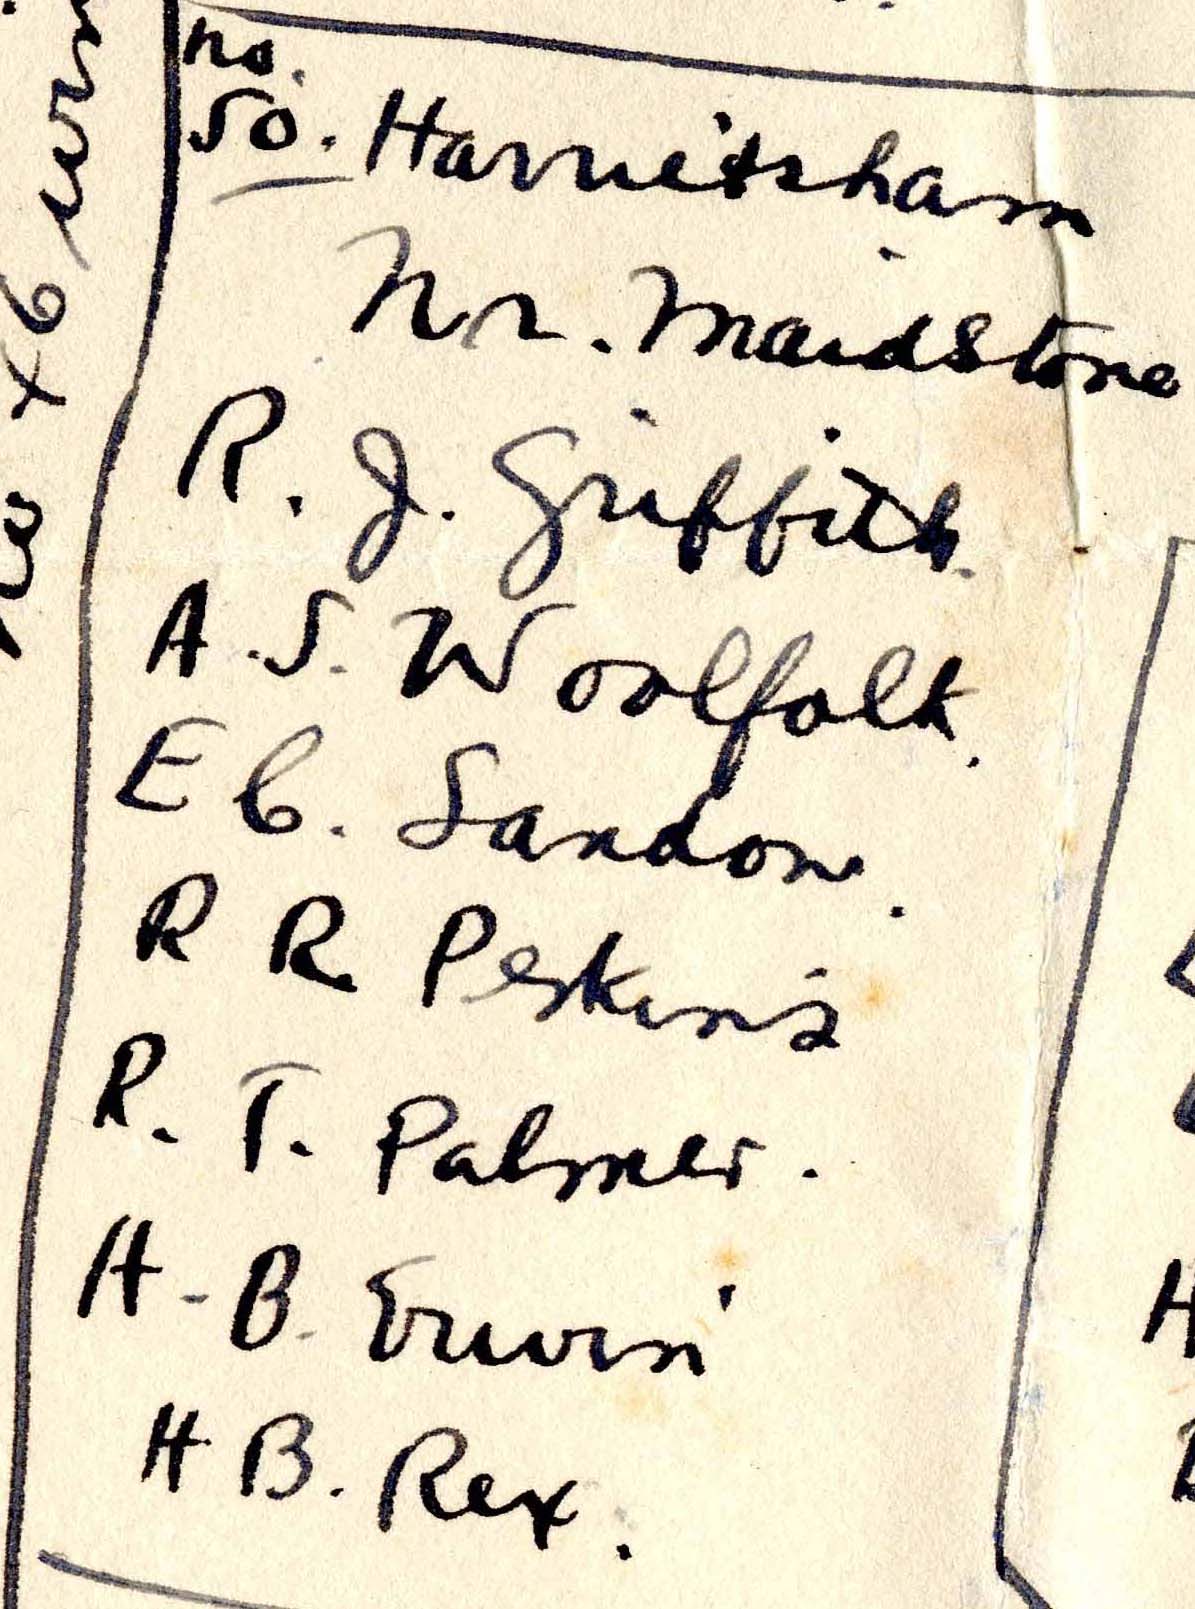 no.
50. Harrietsham
Nr. Maidstone
R. J. Griffith.
A. S. Woolfolk.
E C. Sandow.
R R Perkins
R. T. Palmer.
H. B. Erwin
H B. Rex.
H